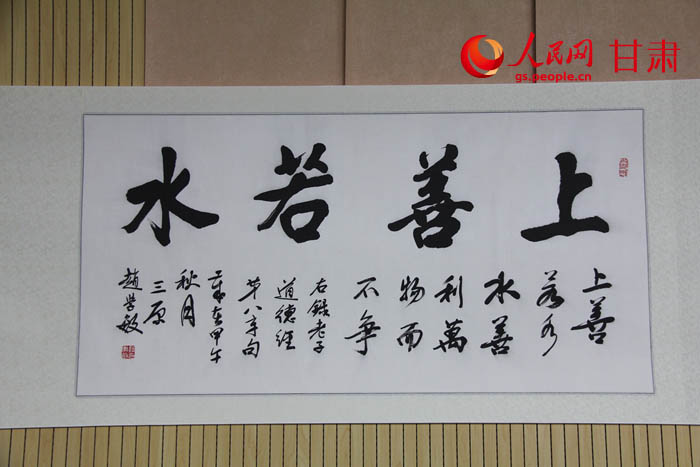 人民网 甘肃
gs.people.cn
上善若水
上善
若水
水善
利萬
物而
不爭
右錄老子
道德經
第八章句
歲在甲午
秋月
三原
趙学敏